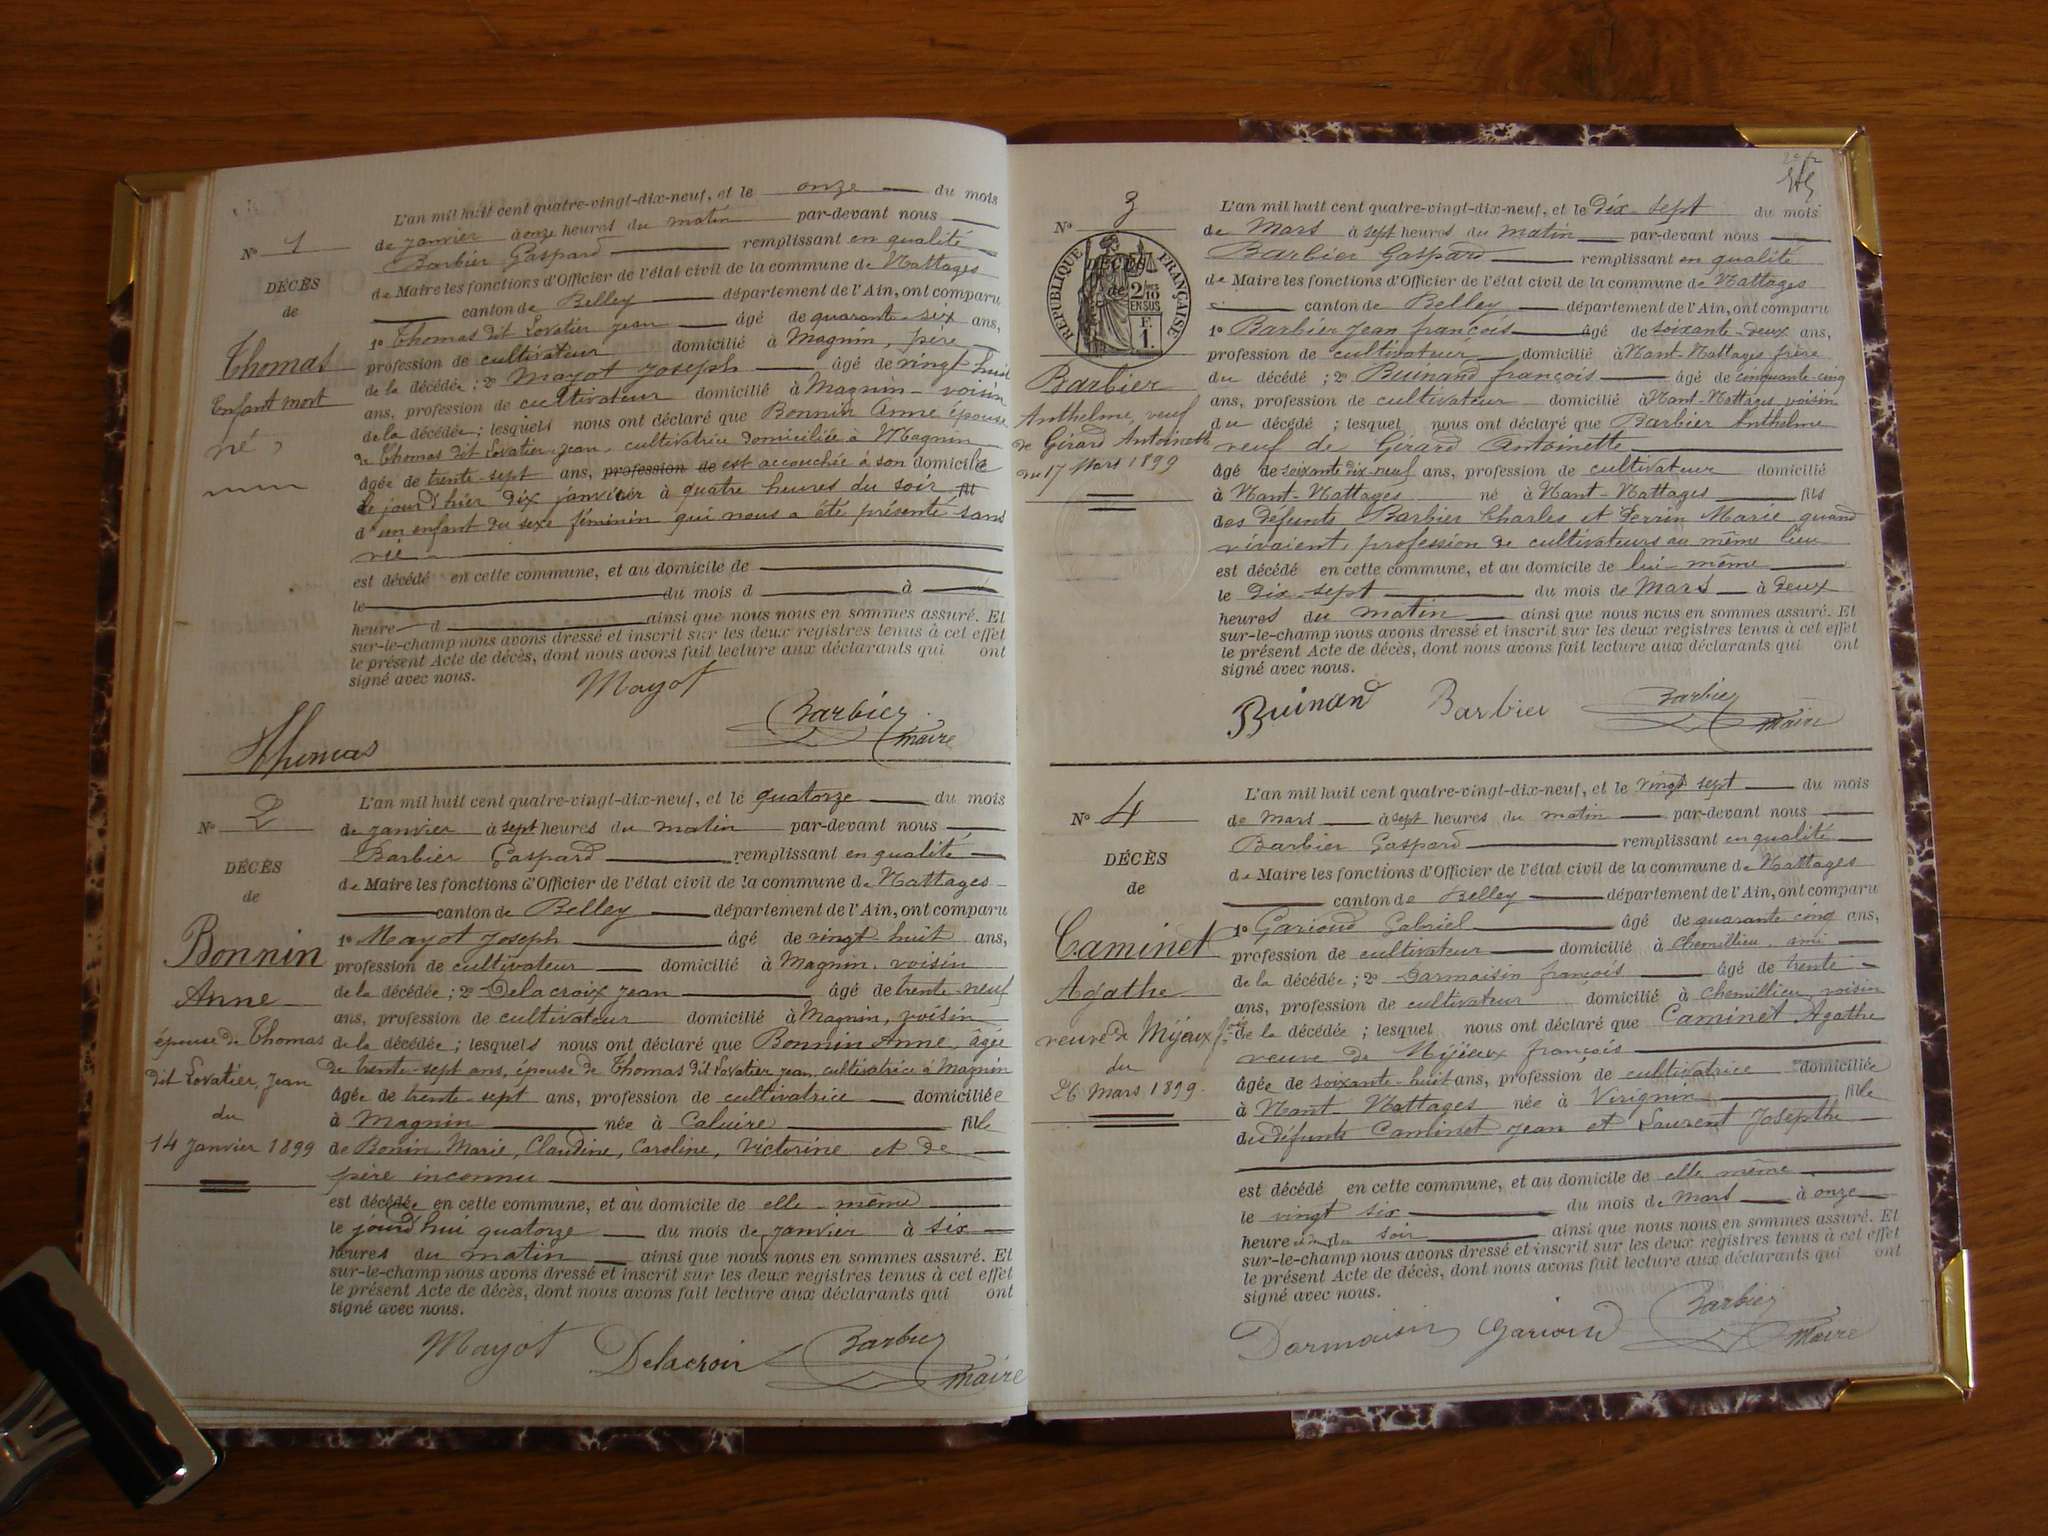 L'an mil huit cent quatre-vingt-dix-neuf, et le onze du mois
de janvier à onze heures du matin par-devant nous
Barbier Gaspard remplissant en qualité
de Maire les fonctions d'Officier de l'état civil de la commune de Nattages
canton de Belley département de l'Ain, ont comparu
1º Thomas dit Lovatier Jean âgé de quarante-six ans,
profession de cultivateur domicilié à Magnin, père
de la décédée ; 2º Mayot Joseph âgé de vingt-huit
ans, profession de cultivateur domicilié à Magnin - voisin
de la décédée ; lesquels nous ont déclaré que Bonnin Anne épouse
de Thomas dit Lovatier Jean, cultivatrice domiciliée à Magnin
âgée de trente-sept ans, profession de est accouchée à son domicile
le jour d'hier dix janvier à quatre heures du soir fil
d'un enfant du sexe féminin qui nous a été présenté sans
vie
est décédé en cette commune, et au domicile de
le du mois d à
heure d ainsi que nous nous en sommes assuré. Et
sur-le-champ nous avons dressé et inscrit sur les deux registres tenus à cet effet
le présent Acte de décès, dont nous avons fait lecture aux déclarants qui ont
signé avec nous.
Nº 1
DÉCÈS
de
Thomas
Enfant mort
né
Mayot
Barbier
maire
Thomas
Nº 2
DÉCÈS
de
Bonnin
Anne
épouse de Thomas
dit Lovatier, Jean
du
14 Janvier 1899
L'an mil huit cent quatre-vingt-dix-neuf, et le quatorze du mois
de janvier à sept heures du matin par-devant nous
Barbier Gaspard remplissant en qualité
de Maire les fonctions d'Officier de l'état civil de la commune de Nattages
canton de Belley département de l'Ain, ont comparu
1º Mayot Joseph âgé de vingt-huit ans,
profession de cultivateur domicilié à Magnin, voisin
de la décédée ; 2º Delacroix Jean âgé de trente-neuf
ans, profession de cultivateur domicilié à Magnin, voisin
de la décédée ; lesquels nous ont déclaré que Bonnin Anne, âgée
de trente-sept ans, épouse de Thomas dit Lovatier Jean, cultivatrice à Magnin
âgée de trente-sept ans, profession de cultivatrice domiciliée
à Magnin née à Caluire fille
de Bonin, Marie, Claudine, Caroline, Victorine et de
père inconnu
est décédée en cette commune, et au domicile de elle-même
le jourd'hui quatorze du mois de janvier à six
heures du matin ainsi que nous nous en sommes assuré. Et
sur-le-champ nous avons dressé et inscrit sur les deux registres tenus à cet effet
le présent Acte de décès, dont nous avons fait lecture aux déclarants qui ont
signé avec nous.
Mayot Delacroix Barbier
maire
Nº 3
RÉPUBLIQUE FRANÇAISE
DÉCÈS
de
2/10
EN SUS
F.
1.
Barbier
Anthelme, veuf
de Girard Antoinette
du 17 Mars 1899
L'an mil huit cent quatre-vingt-dix-neuf, et le dix-sept du mois
de Mars à sept heures du matin par-devant nous
Barbier Gaspard remplissant en qualité
de Maire les fonctions d'Officier de l'état civil de la commune de Nattages
canton de Belley département de l'Ain, ont comparu
1º Barbier Jean françois âgé de soixante-deux ans,
profession de cultivateur domicilié à Nant-Nattages frère
du décédé ; 2º Buinand françois âgé de cinquante-cinq
ans, profession de cultivateur domicilié à Nant-Nattages, voisin
du décédé ; lesquel nous ont déclaré que Barbier Anthelme
veuf de Girard Antoinette
âgé de soixante dix-neuf ans, profession de cultivateur domicilié
à Nant-Nattages né à Nant-Nattages fils
des défunts Barbier Charles et Perrin Marie quand
vivaient, profession de cultivateurs au même lieu
est décédé en cette commune, et au domicile de lui-même
le dix-sept du mois de Mars à deux
heures du matin ainsi que nous nous en sommes assuré. Et
sur-le-champ nous avons dressé et inscrit sur les deux registres tenus à cet effet
le présent Acte de décès, dont nous avons fait lecture aux déclarants qui ont
signé avec nous.
Buinand Barbier Barbier
maire
Nº 4
DÉCÈS
de
Caminet
Agathe
veuve de Mijeaux
du
26 Mars 1899.
L'an mil huit cent quatre-vingt-dix-neuf, et le vingt sept du mois
de Mars à sept heures du matin par-devant nous
Barbier Gaspard remplissant en qualité
de Maire les fonctions d'Officier de l'état civil de la commune de Nattages
canton de Belley département de l'Ain, ont comparu
1º Garioud Gabriel âgé de quarante cinq ans,
profession de cultivateur domicilié à Chemillieu, ami
de la décédée ; 2º Darmaisin françois âgé de trente
ans, profession de cultivateur domicilié à Chemillieu, voisin
de la décédée ; lesquel nous ont déclaré que Caminet Agathe
veuve de Mijeaux françois
âgée de soixante-huit ans, profession de cultivatrice domiciliée
à Nant-Nattages née à Virignin fille
des défunts Caminet Jean et Laurent Josephte
est décédé en cette commune, et au domicile de elle même
le vingt six du mois de Mars à onze
heure du soir ainsi que nous nous en sommes assuré. Et
sur-le-champ nous avons dressé et inscrit sur les deux registres tenus à cet effet
le présent Acte de décès, dont nous avons fait lecture aux déclarants qui ont
signé avec nous.
Darmaisin Garioud Barbier
Maire